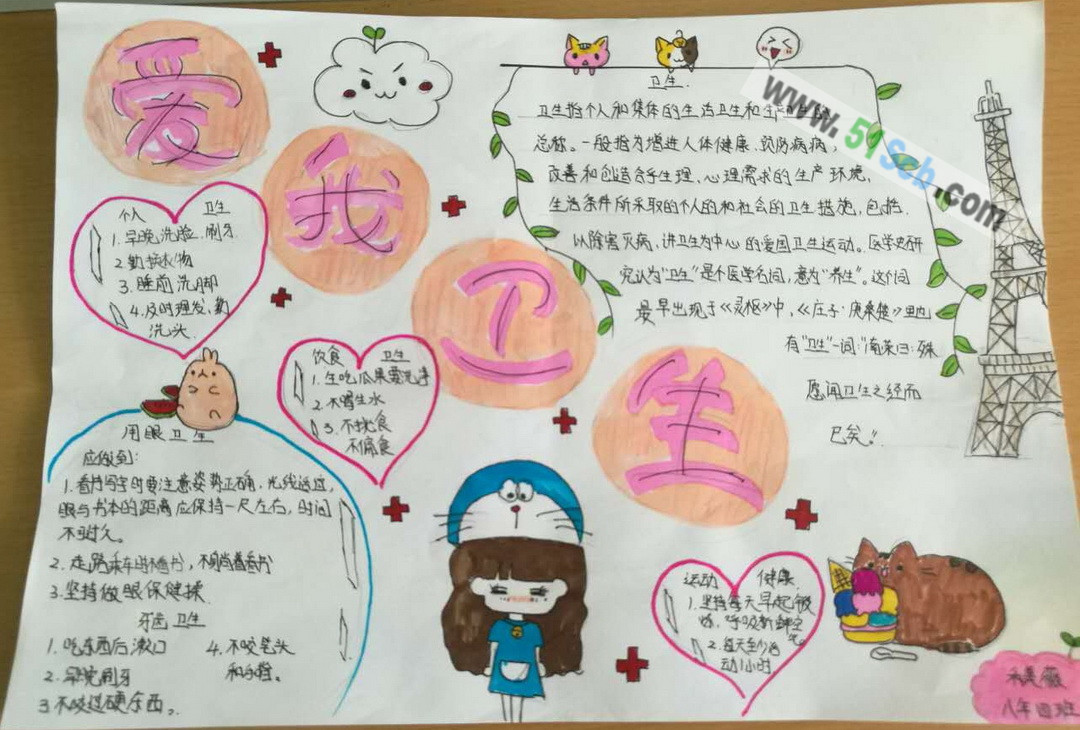 爱我卫生
卫生.
卫生指个人和集体的生活卫生和生产卫生的
总称。一般指为增进人体健康、预防疾病,
改善和创造合乎生理、心理需求的生产环境、
生活条件所采取的个人的和社会的卫生措施,包括.
以除害灭病、讲卫生为中心的爱国卫生运动。医学史研
究认为"卫生"是个医学名词,意为"养生"。这个词
最早出现于《灵枢》中,《庄子·庚桑楚》里也
有"卫生"一词:"南荣曰:殊
愿闻卫生之经而
已矣"。
www.51Scb.com
个人 卫生
1.早晚洗脸、刷牙
2.勤换衣物
3.睡前洗脚
4.及时理发、勤
洗头
饮食 卫生
1.生吃瓜果要洗净
2.不喝生水
3.不挑食
不偏食
用眼卫生
应做到:
1.看书写字时要注意姿势正确、光线适过,
眼与书本的距离应保持一尺左右,时间
不可过久。
2.走路乘车时不看书,不躺着看书
3.坚持做眼保健操
牙齿卫生
1.吃东西后漱口
2.早晚刷牙
3.不咬过硬东西。
4.不咬笔头
和手指。
运动 健康
1.坚持每天早起锻
炼,呼吸新鲜空
气
2.每天至少运
动1小时
八年四班